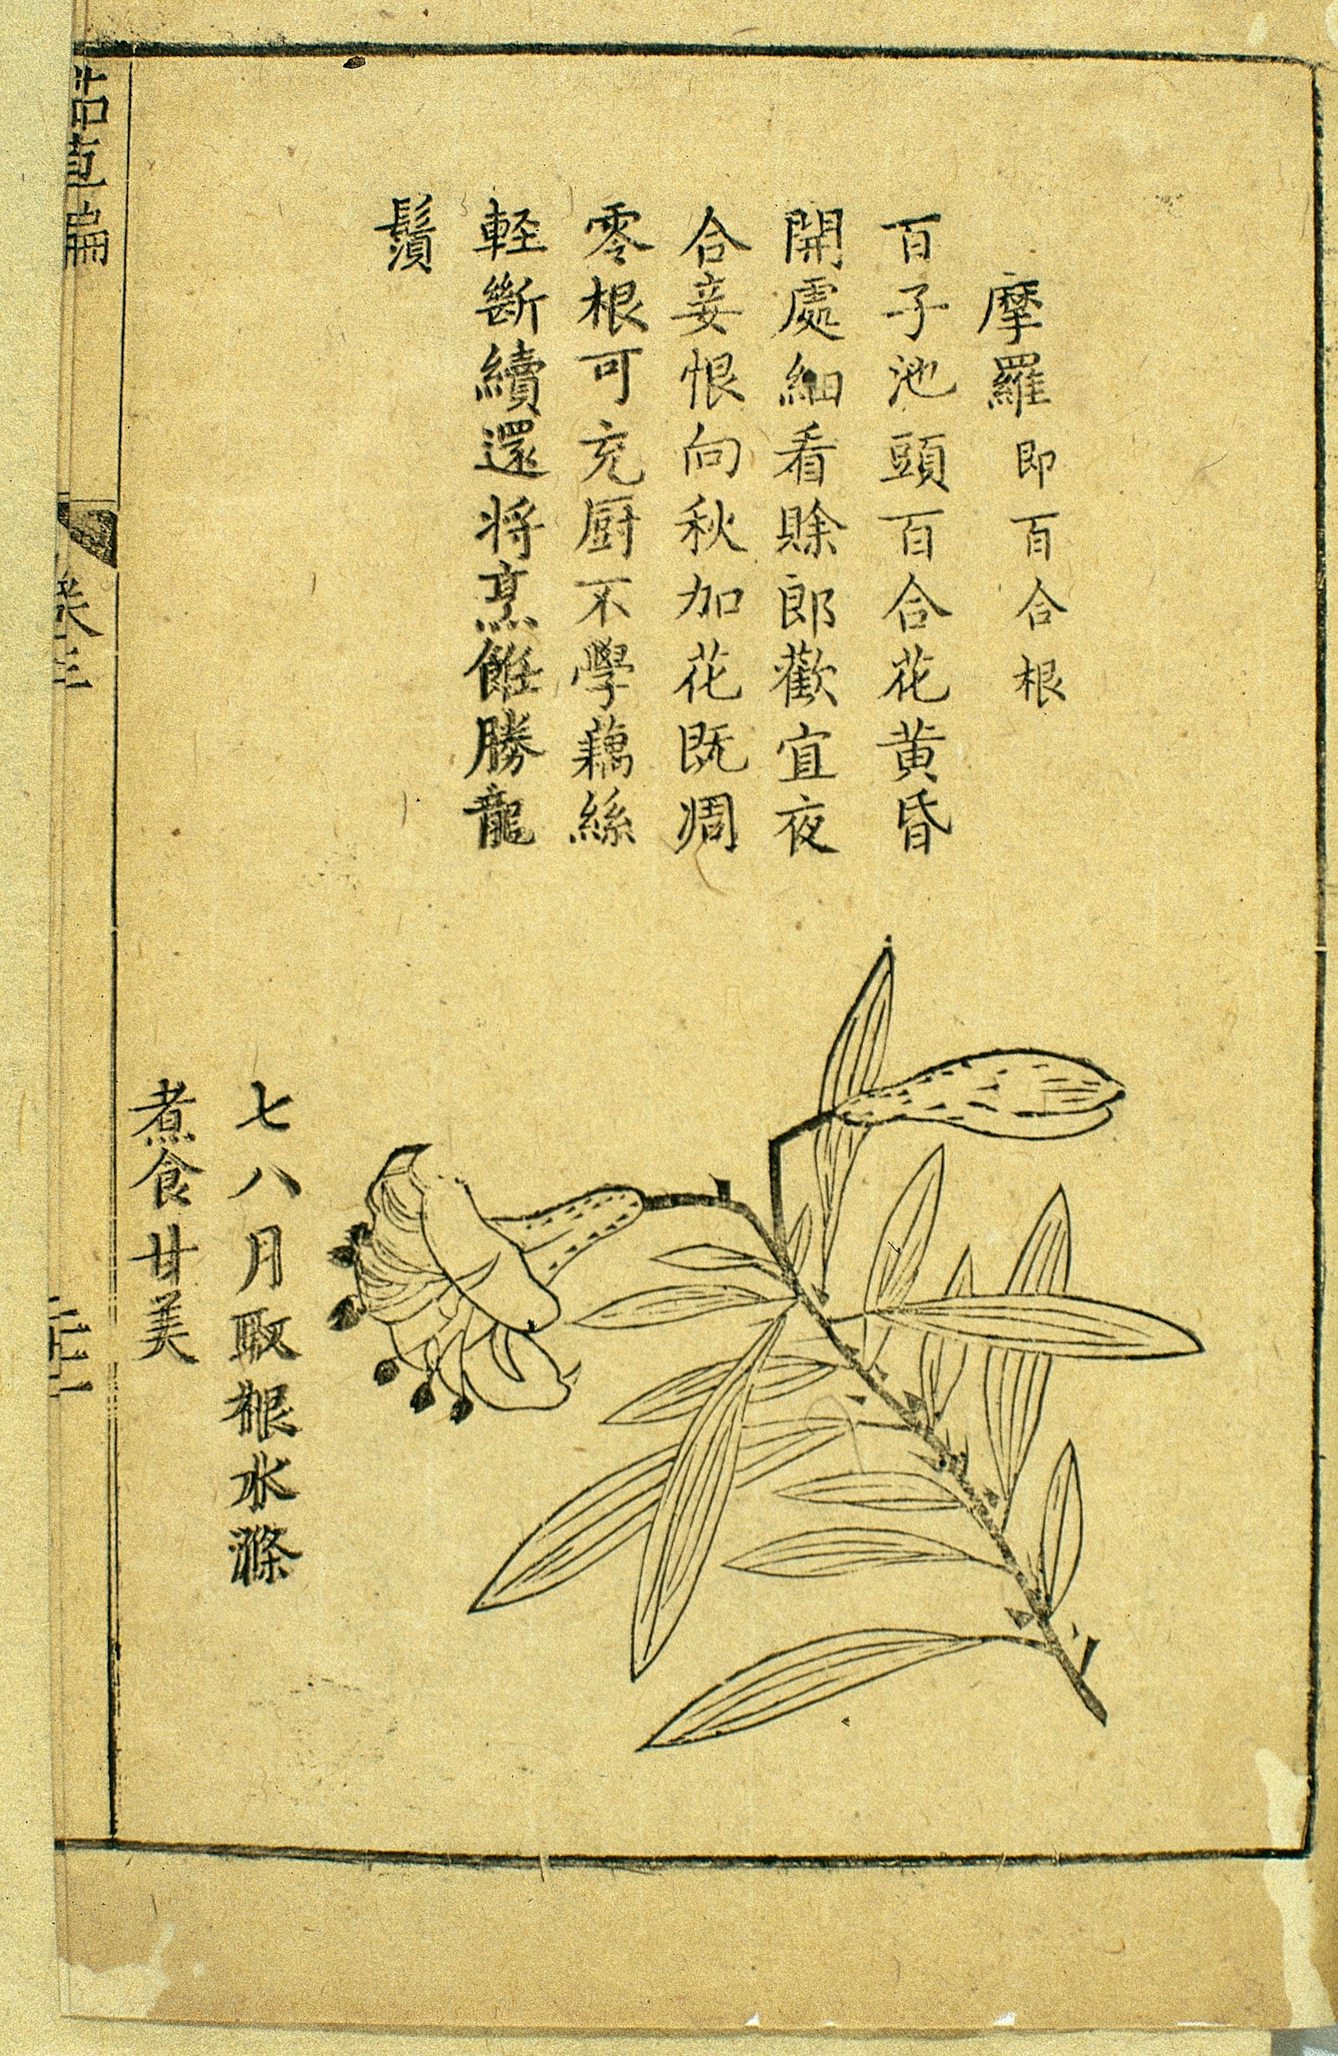 摩羅即百合根
百子池頭百合花黄昏
開處細看賖郎歡宜夜
合妾恨向秋加花既凋
零根可充厨不學藕絲
軽斷續還将烹餁勝龍
鬚
七八月取根水滌
煮食甘美
茹草編
卷三